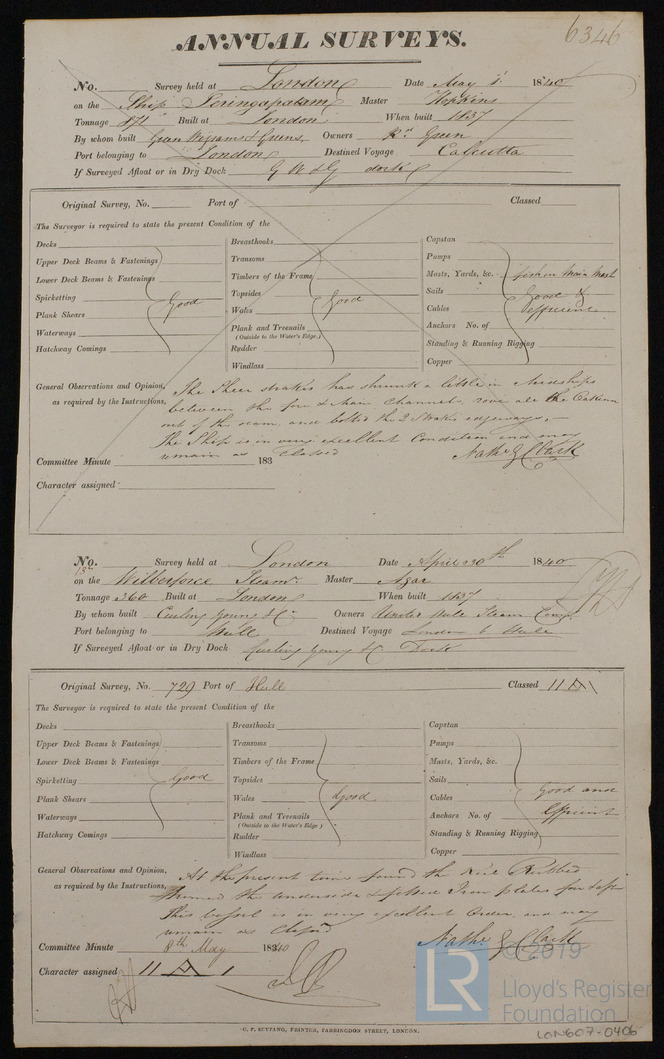 6346
ANNUAL SURVEYS.
No. Survey held at London Date May 1st 1840
on the Ship Seringapatam Master Hopkins
Tonnage 871 Built at London When built 1837
By whom built Green Wigrams & Greens, Owners Rd. Green
Port belonging to London Destined Voyage Calcutta
If Surveyed Afloat or in Dry Dock G W & G dock
Original Survey, No. Port of Classed
The Surveyor is required to state the present Condition of the
Decks Breasthooks Capstan
Upper Deck Beams & Fastenings Transoms Pumps
Lower Deck Beams & Fastenings Timbers of the Frame Masts, Yards, &c. Main Mast
Spirketting Good Topsides Good Sails Good &
Plank Shears Wales Cables Efficient
Waterways Plank and Treenails Anchors No. of
(Outside to the Water's Edge.)
Hatchway Comings Rudder Standing & Running Rigging
Windlass Copper
General Observations and Opinion, The Sheer strakes has shrunk a little in Midships
as required by the Instructions, between the fore & Main Channels, rove all the Oakum
out of the seam, and bolted the 2 Strakes edgeways,
The Ship is in very excellent Condition and may
remain as Classed Nathl. G Clark
Committee Minute 183
Character assigned
No. Survey held at London Date April 30th 1840
on the Wilberforce Steamr. Master Agar
Tonnage 360 Built at London When built 1837
By whom built Curling Young & Co. Owners Hull Steam Compy.
Port belonging to Hull Destined Voyage London to Hull
If Surveyed Afloat or in Dry Dock Curling Young & Co Dock
Original Survey, No. 729 Port of Hull Classed 11 A1
The Surveyor is required to state the present Condition of the
Decks Breasthooks Capstan
Upper Deck Beams & Fastenings Transoms Pumps
Lower Deck Beams & Fastenings Timbers of the Frame Masts, Yards, &c.
Spirketting Good Topsides Sails
Plank Shears Wales Good Cables Good and
Waterways Plank and Treenails Anchors No. of Efficient
(Outside to the Water's Edge.)
Hatchway Comings Rudder Standing & Running Rigging
Windlass Copper
General Observations and Opinion, At the present time found the Keel Rubbed
as required by the Instructions, the underside & fitted Iron plates
This vessel is in very excellent Order, and may
remain as Classed
Committee Minute 8th May 1840 Nathl. G Clark
Character assigned 11 A 1
C. F. SEYFANG, PRINTER, FARRINGDON STREET, LONDON.
LR
© 2019
Lloyd's Register
Foundation
LON607-0406